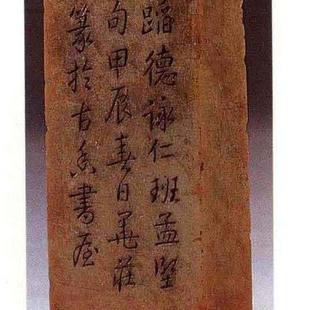 蹈德詠仁班孟堅
句甲辰春日花莊
篆於古香書屋